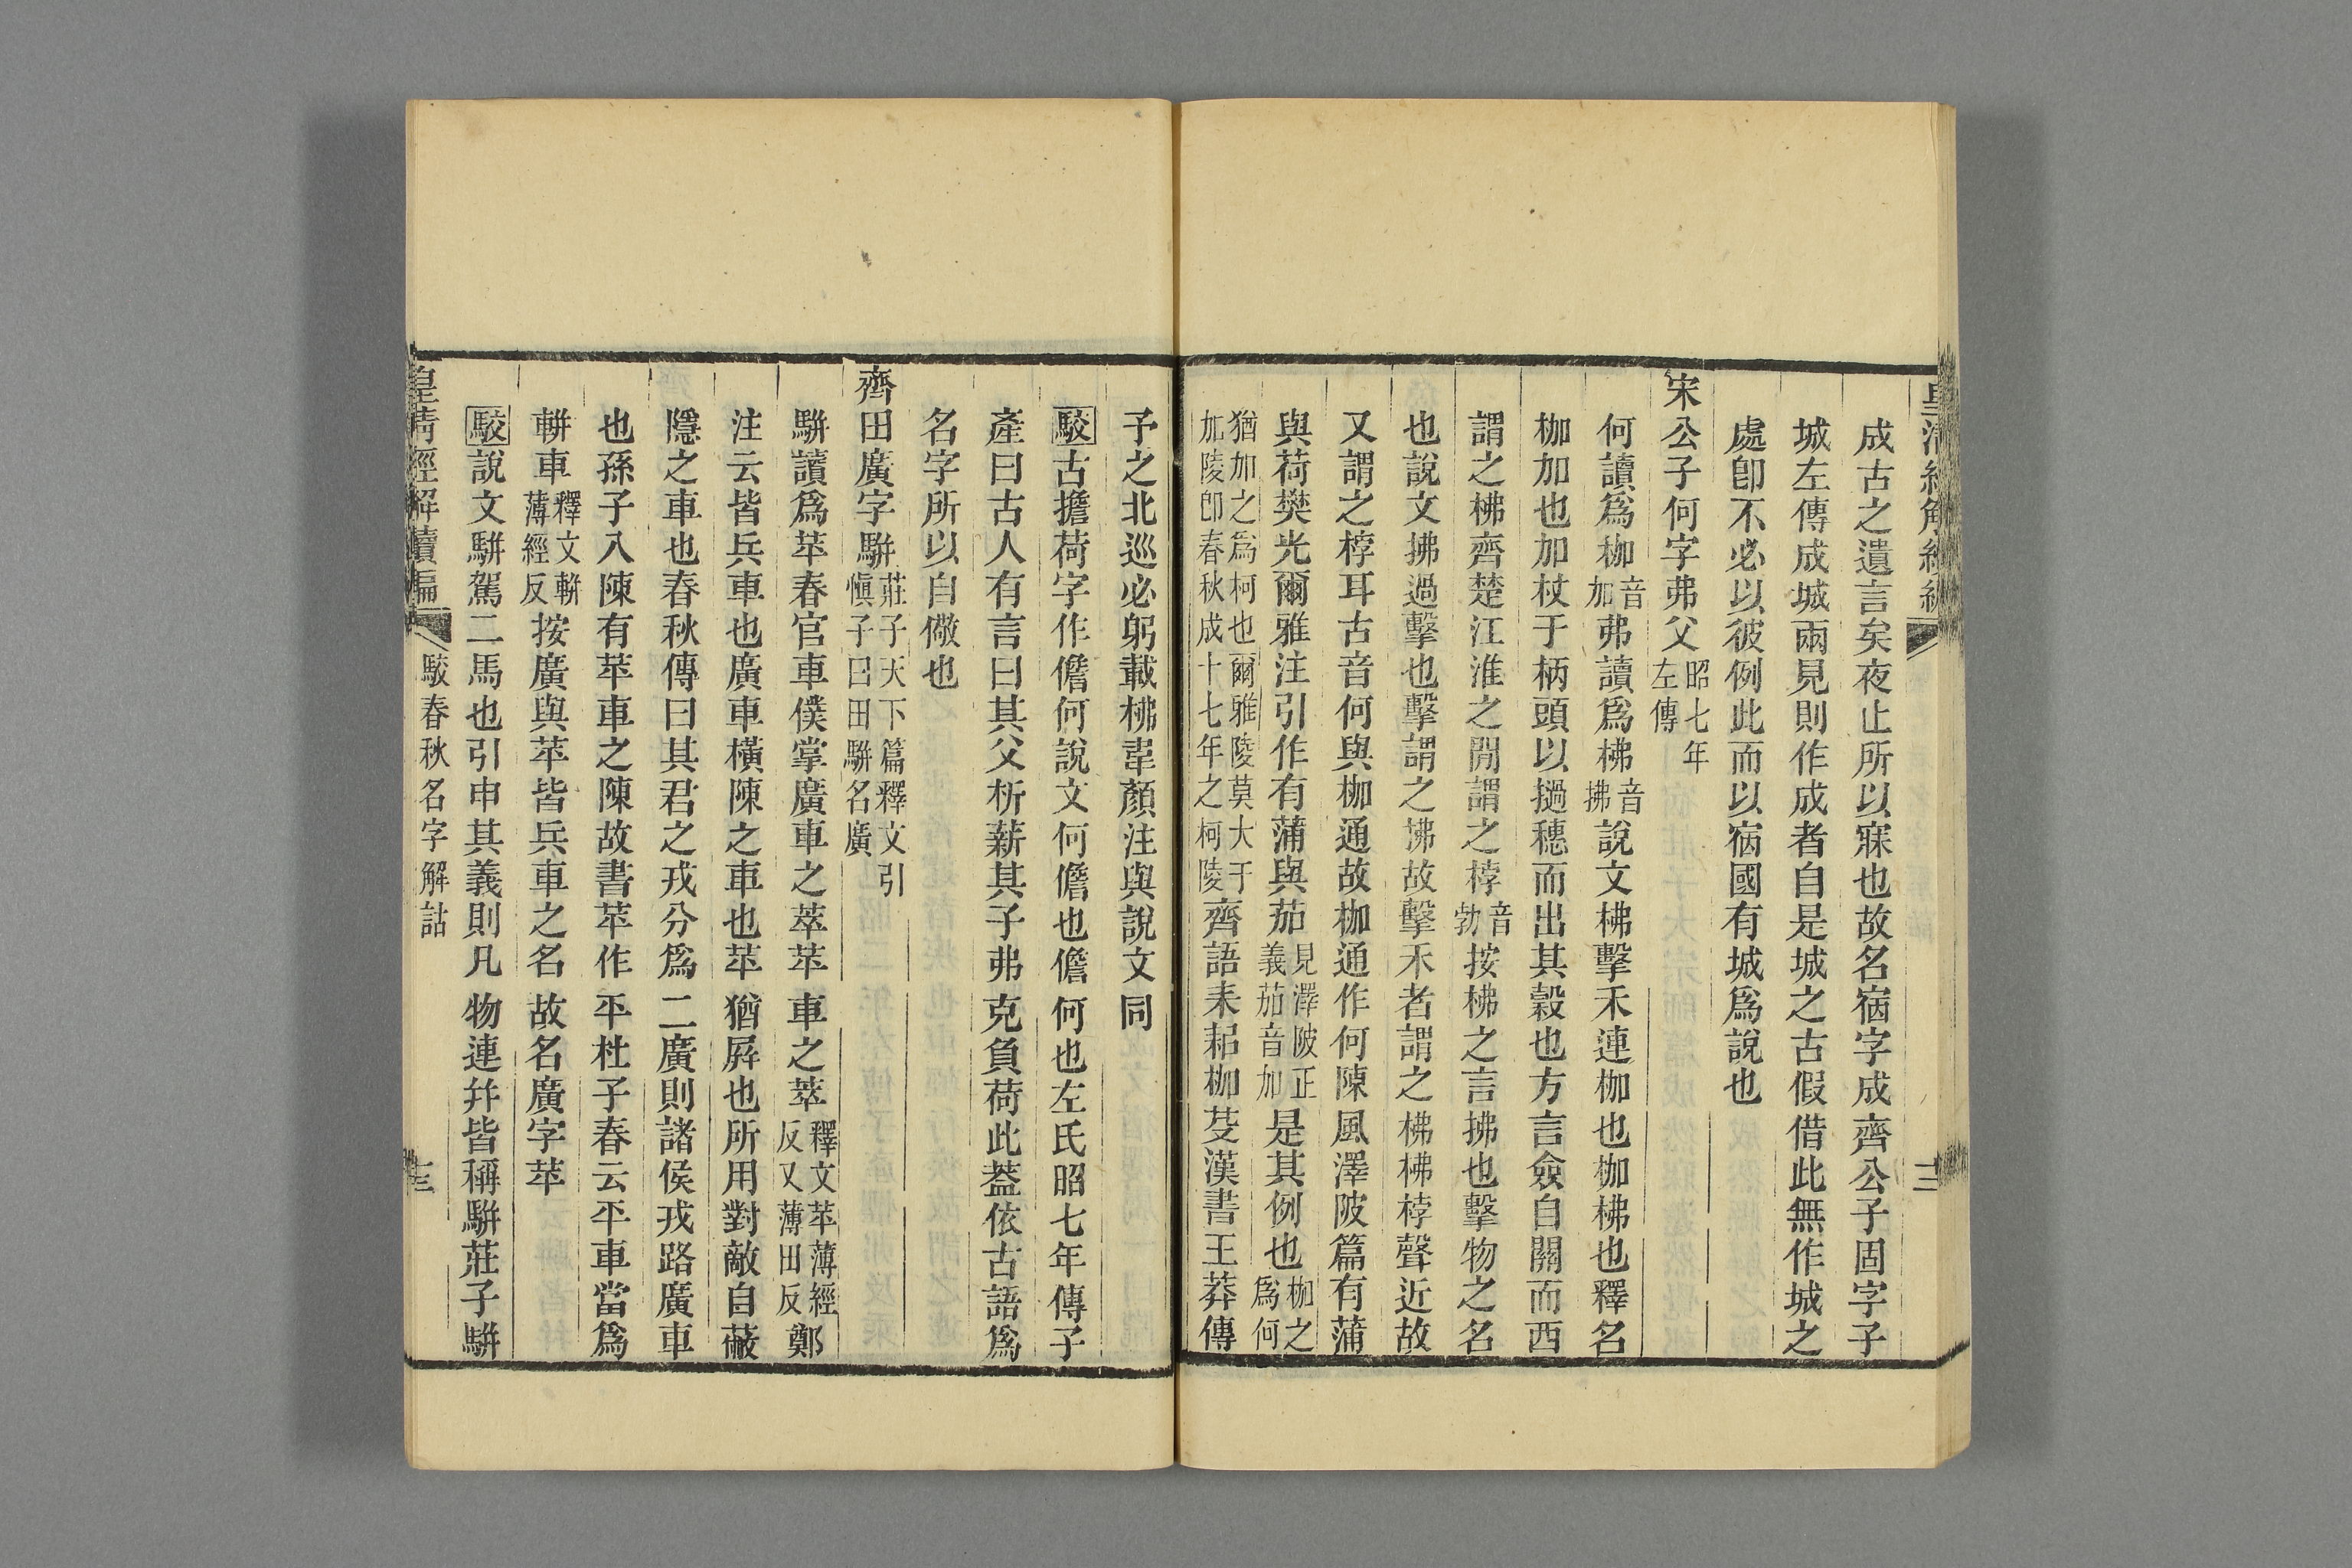 成古之遺言矣夜止所以寐也故名宿字成齊公子固字子
城左傳成城兩見則作成者自是城之古假借此無作城之
處卽不必以彼例此而以宿國有城爲說也
宋公子何字弗父昭七年左傳
何讀爲枷音加弗讀爲柫音拂說文柫擊禾連枷也枷柫也釋名
枷加也加杖于柄頭以撾穗而出其穀也方言僉自關而西
謂之柫齊楚江淮之閒謂之桲音勃按柫之言拂也擊物之名
也說文拂過擊也擊謂之拂故擊禾者謂之柫柫桲聲近故
又謂之桲耳古音何與枷通故枷通作何陳風澤陂篇有蒲
與荷樊光爾雅注引作有蒲與茄見澤陂正義茄音加是其例也枷之爲何
猶加之爲柯也爾雅陵莫大于加陵卽春秋成十七年之柯陵齊語耒耜枷芟漢書王莽傳
予之北巡必躬載柫韋顏注與說文同
駮古擔荷字作儋何說文何儋也儋何也左氏昭七年傳子
產曰古人有言曰其父析薪其子弗克負荷此葢依古語爲
名字所以自儆也
齊田廣字駢莊子天下篇釋文引慎子曰田駢名廣
駢讀爲苹春官車僕掌廣車之萃苹車之萃釋文苹薄經反又薄田反鄭
注云皆兵車也廣車橫陳之車也苹猶屛也所用對敵自蔽
隱之車也春秋傳曰其君之戎分爲二廣則諸侯戎路廣車
也孫子八陳有苹車之陳故書苹作平杜子春云平車當爲
軿車釋文軿薄經反按廣與苹皆兵車之名故名廣字苹
駮說文駢駕二馬也引申其義則凡物連幷皆稱駢莊子駢
皇清經解續編 駮春秋名字解詁